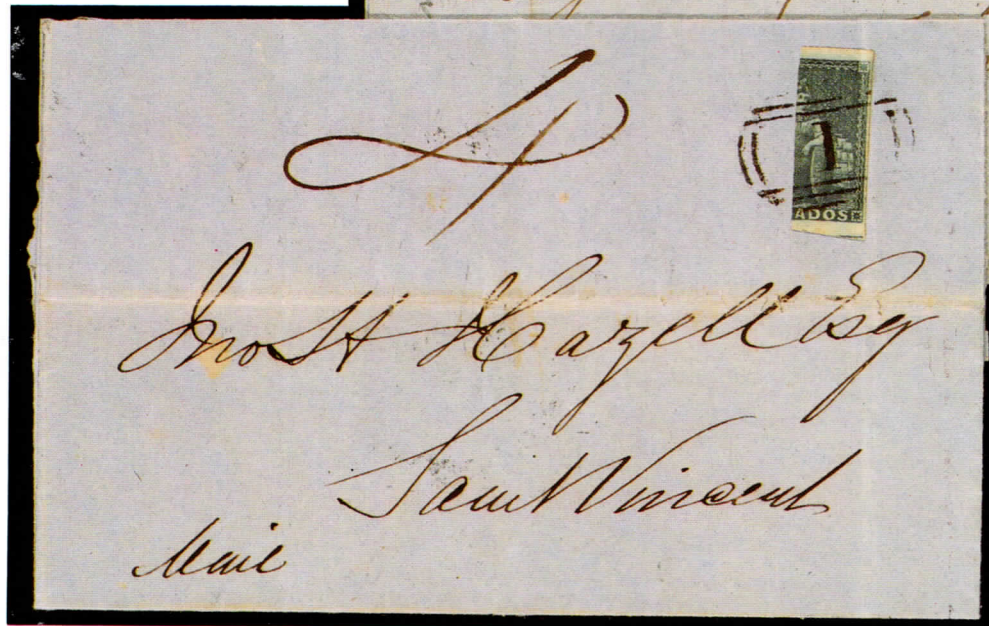 4
1
ADOS
Jno H Hazell Esq
Saint Vincent
Mail